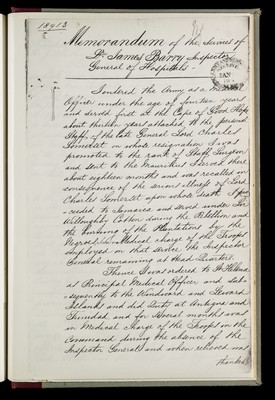 18913
Memorandum of the Services of
Dr. James Barry Inspector
General of Hospitals
I entered the Army as a
Officer under the age of fourteen years
and served first at the Cape of Good Hope
about thirteen years attached to the personal
Staff of the late General Lord Charles
Somerset on whose resignation I was
promoted to the rank of Staff Surgeon
and sent to the Mauritius I served there
about eighteen months and was recalled in
consequence of the serious illness of Lord
Charles Somerset upon whose death I pro-
ceeded to Jamaica and served under Sir
Willoughby Cotton during the Rebellion and
the burning of the Plantations by the
Negroes in Medical charge of the Troops
employed on that service the Inspector
General remaining at Head Quarters.
Thence I was ordered to St Helena
as Principal Medical Officer and sub-
sequently to the Windward and Leeward
Islands and did duty at Antigua and
Trinidad and for several months was
in Medical charge of the Troops in the
Command during the absence of the
Inspector General and when relieved was
thanked